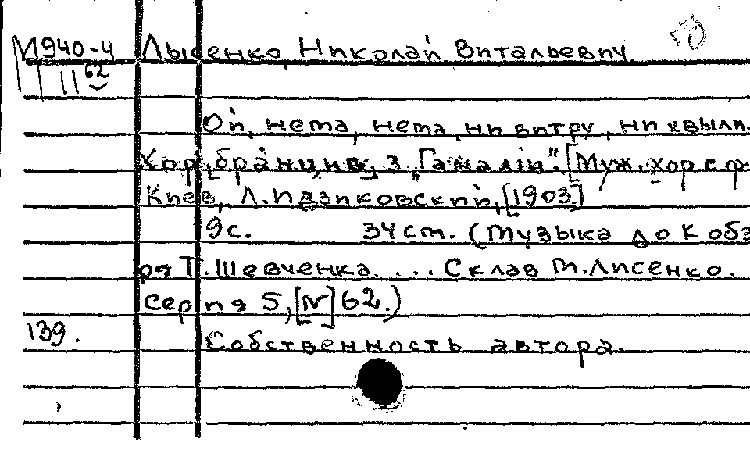 М940-4 Лысенко, Николай Витальевич
62
Ой, нема, нема ни витру, ни хвыли.
Хор бранцив, з "Гамалiи". [Муж. хор с ф
Киев, Л. Идзиковский, [1903]
9с. 34 ст. (Музыка до Кобз
ря Т. Шевченка. ... Склав М. Лисенко.
Серия 5, [N] 62.)
139. Собственность автора.